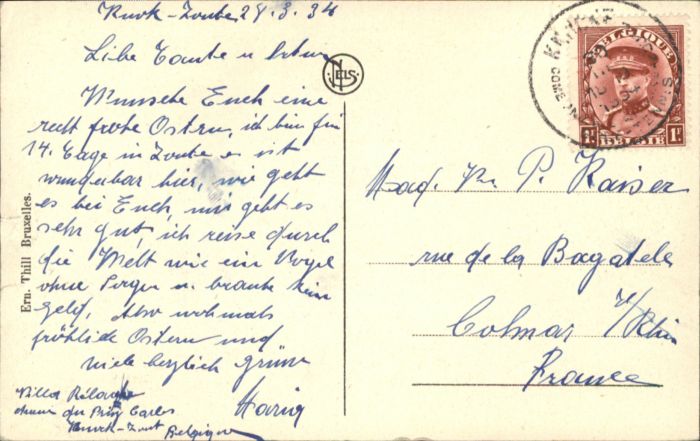 Knok-Zoute 28.3.34
Liebe Tante u
Wunsche Euch eine
recht frohe Ostern, ich bin für
14. Tage in Zoute es ist
wunderbar hier, wie geht
es bei Euch, mir geht es
sehr gut, ich reise durch
die Welt wie ein Vogel
ohne Sorgen u. brauche kein
geld, Also nochmals
fröhliche Ostern und
viele herzlich Grüsse
Maria
Villa
du Carlos
Knock-Zout Belgique
Ern. Thill Bruxelles.
NELS
BELGIQUE
1F BELGIE 1F
Mad. P. Kaiser
rue de la Bagatelle
Colmar H/Rhin
France